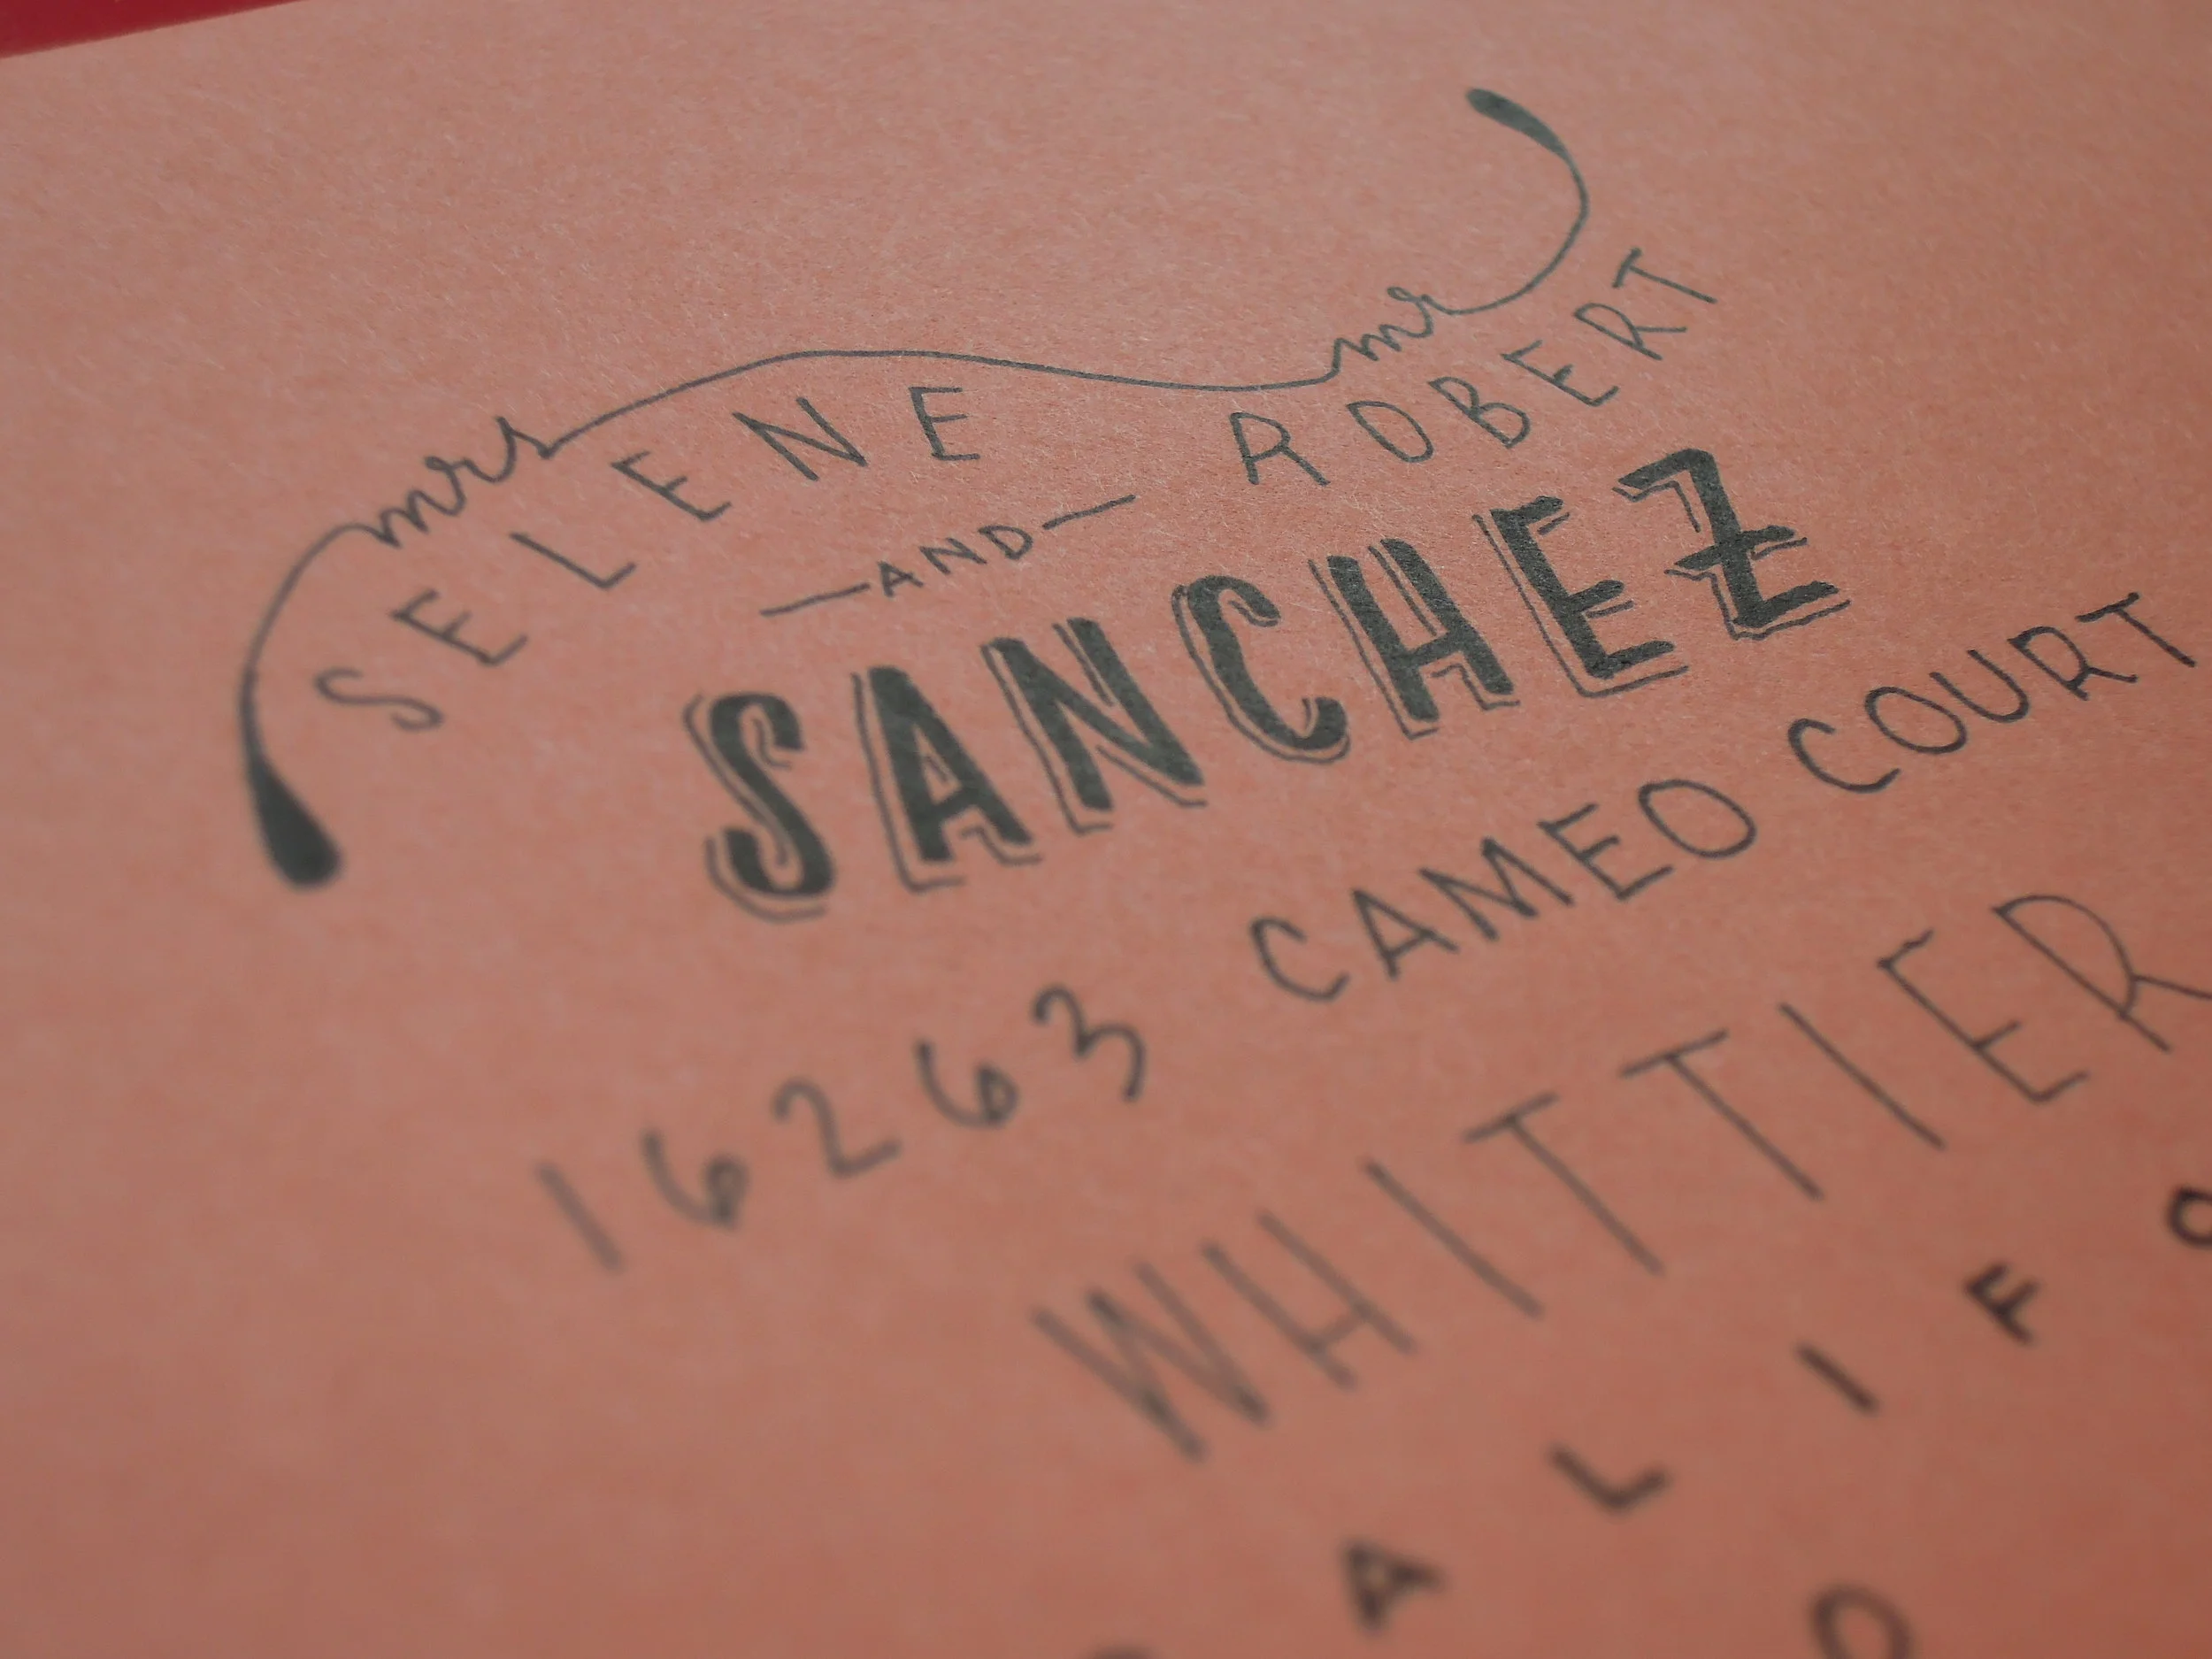 mrs mr
SELENE ROBERT
—AND—
SANCHEZ
16263 CAMEO COURT
WHITTIER
ALIFO